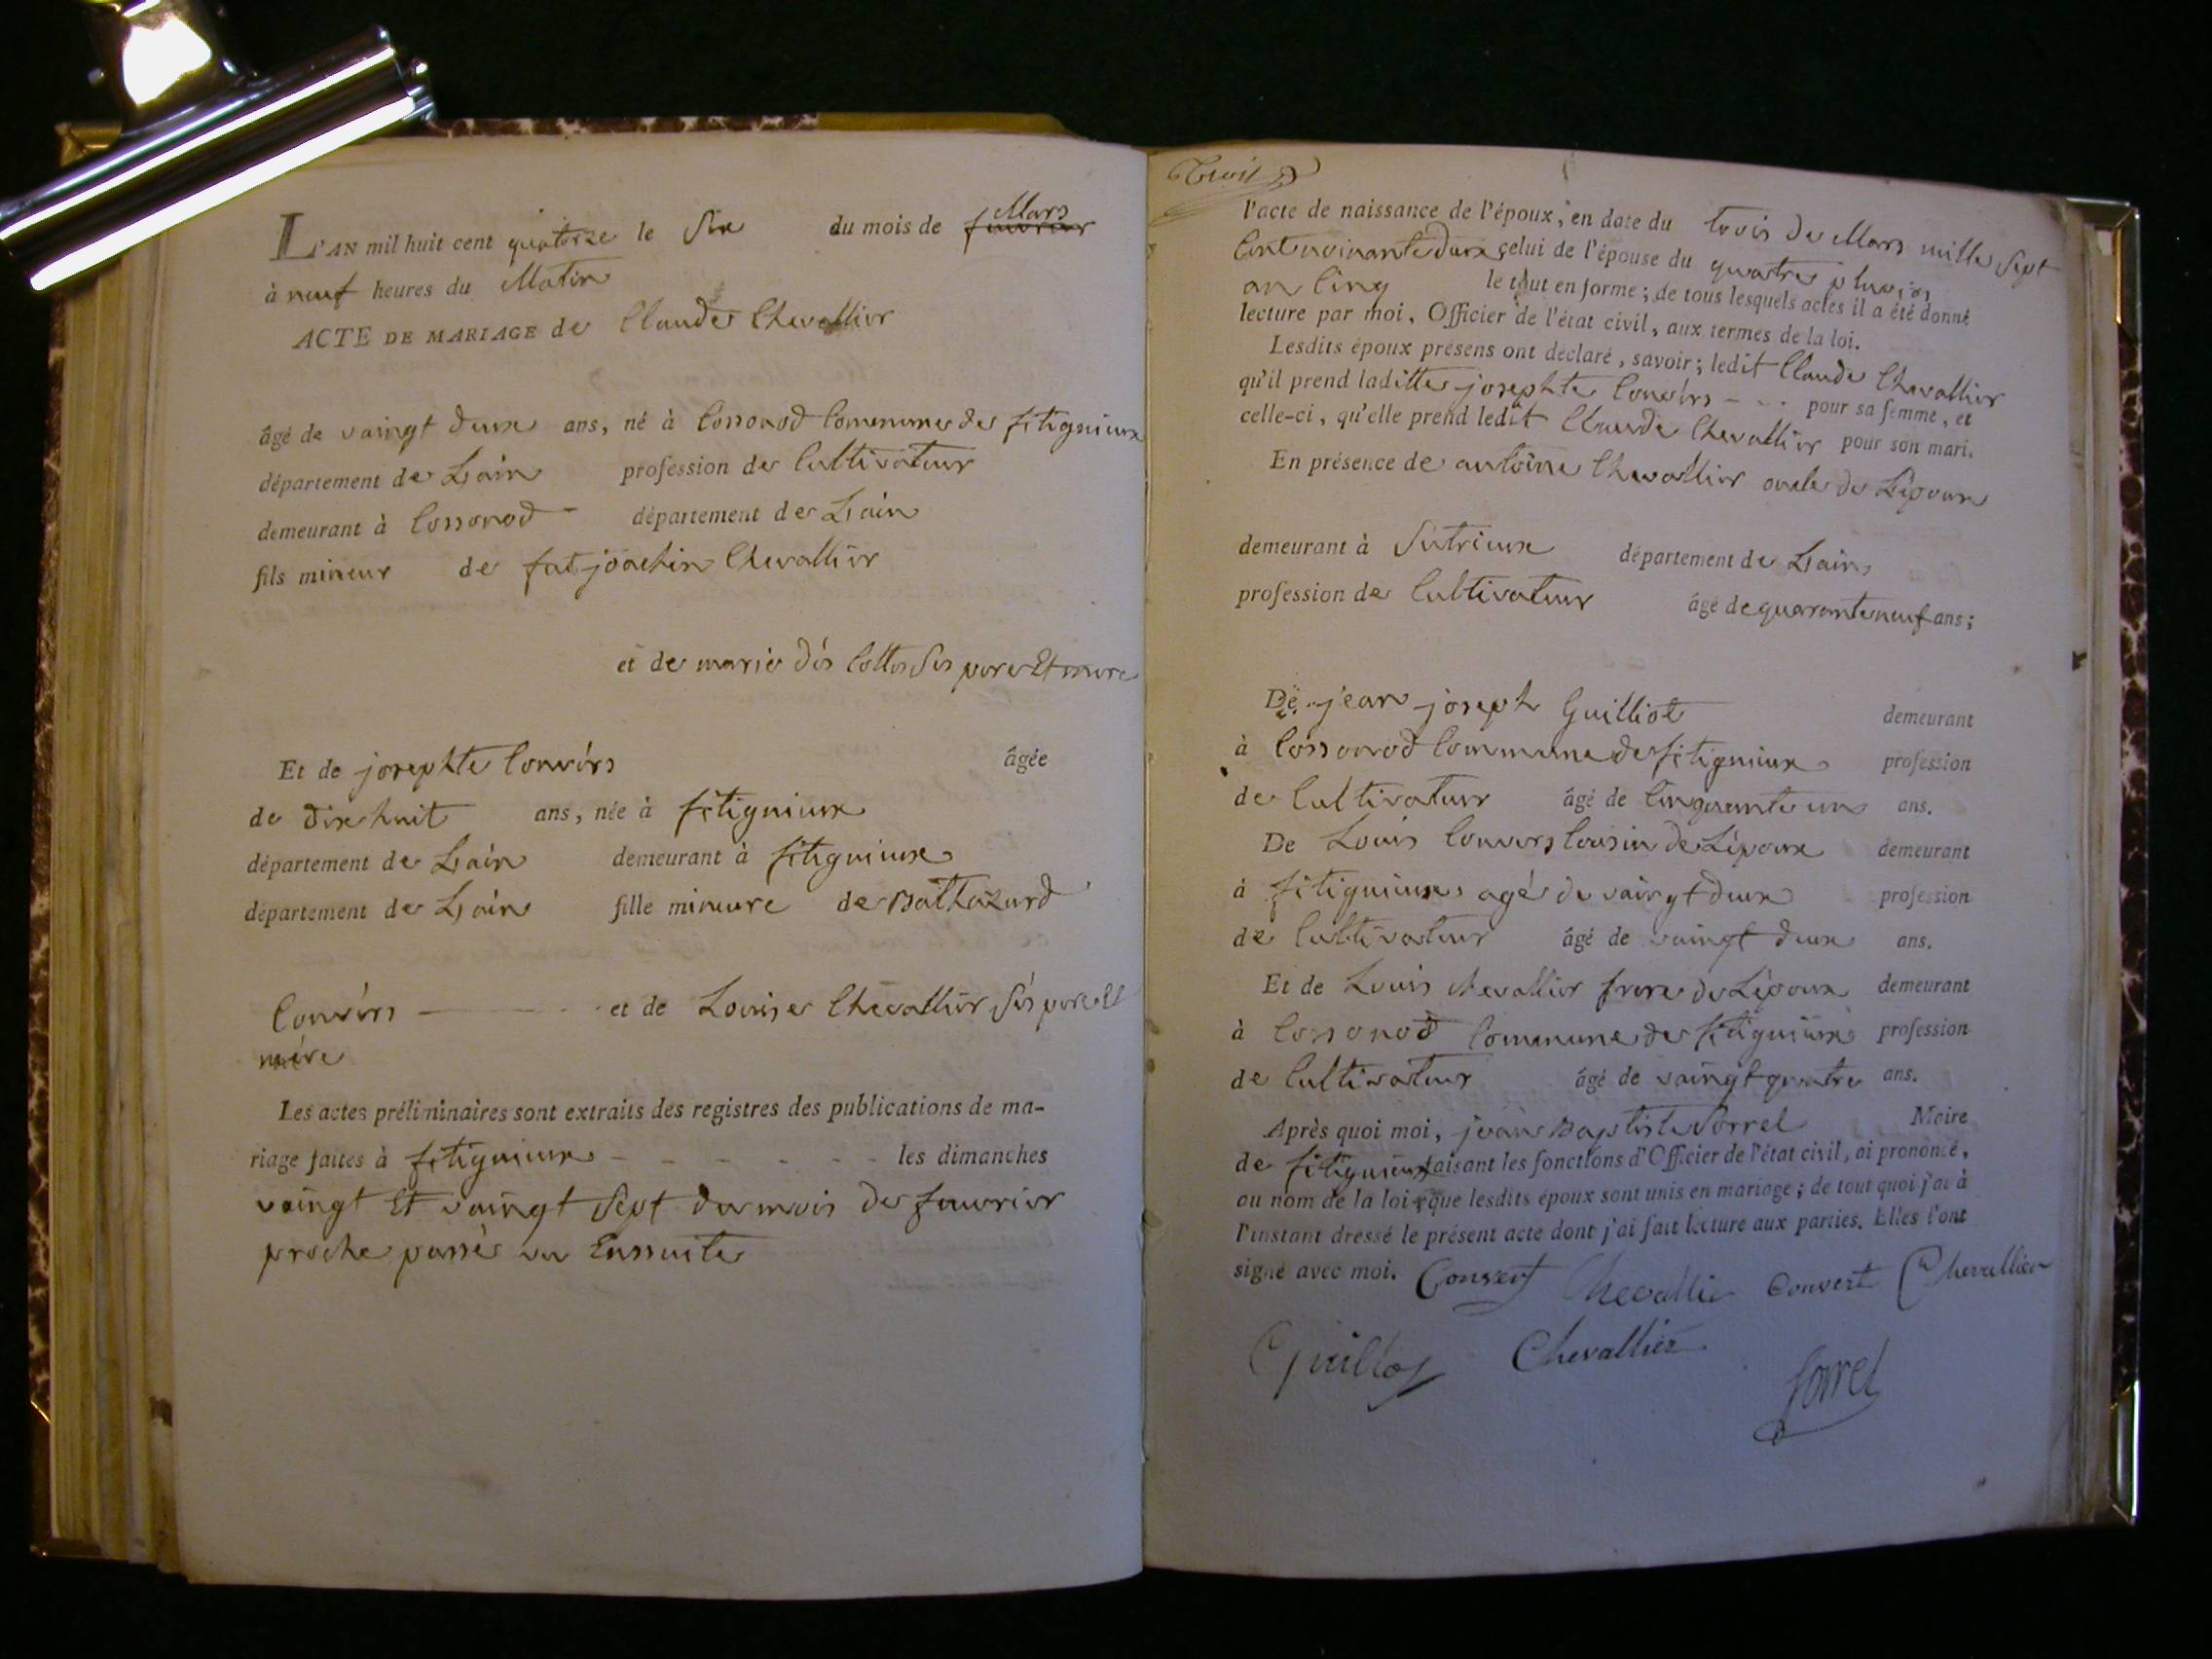 L'AN mil huit cent quatorze le Six du mois de fevrier Mars
à neuf heures du Matin
ACTE DE MARIAGE de Claude Chevallier
âgé de vaingt deux ans, né à Cossonod Commune de fitignieux
département de L'ain profession de Cultivateur
demeurant à Cossonod - département de L'ain
fils mineur de joachin Chevallier
et de marie Cottes Ses pere Et mere
Et de josephte Convérs âgée
de dix huit ans, née à fitignieux
département de L'ain demeurant à fitignieux
département de L'ain fille mineure de Balthazard
Convérs et de Louise Chevallier Sés pere Et
mére
Les actes préliminaires sont extraits des registres des publications de ma-
riage faites à fitignieux - - - - - - les dimanches
vaingt Et vaingt Sept du mois de fevrier
proche passé Enssuite
l'acte de naissance de l'époux, en date du trois de Mars mille Sept
Cent noinante deux celui de l'épouse du quatre pluvios
an Cinq le tout en forme; de tous lesquels actes il a été donné
lecture par moi, Officier de l'état civil, aux termes de la loi.
Lesdits époux présens ont déclaré, savoir; ledit Claude Chevallier
qu'il prend laditte josephte Convérs - - - pour sa femme, et
celle-ci, qu'elle prend ledit Claude Chevallier pour son mari.
En présence de antoine Chevallier oncle de L'époux
demeurant à Sutrieux département de L'ain,
profession de Cultivateur âgé de quarante neuf ans;
De jean joseph Guilliot demeurant
à Cossonod Commune de fitignieux profession
de Cultivateur âgé de Cinquante un ans.
De Louis Convers Cousin de L'époux demeurant
à fitignieux agé de vaingt deux profession
de Cultivateur âgé de vaingt deux ans.
Et de Louis Chevallier frere de L'époux demeurant
à Cossonod Commune de fitignieux profession
de Cultivateur âgé de vaingt quatre ans.
Après quoi moi, jean Baptiste Sorrel Maire
de fitignieux faisant les fonctions d'Officier de l'état civil, ai prononcé,
au nom de la loi, que lesdits époux sont unis en mariage; de tout quoi j'ai à
l'instant dressé le présent acte dont j'ai fait lecture aux parties. Elles l'ont
signé avec moi. Convert Chevallie Convert Chevallier
Guillot Chevallier
Sorrel